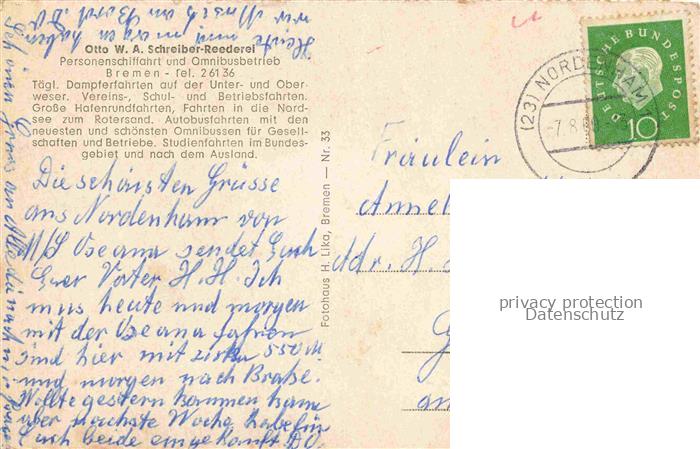 Otto W. A. Schreiber-Reederei
Personenschiffahrt und Omnibusbetrieb
Bremen - Tel. 26136
Tägl. Dampferfahrten auf der Unter- und Ober-
weser. Vereins-, Schul- und Betriebsfahrten.
Große Hafenrundfahrten, Fahrten in die Nord-
see zum Rotersand. Autobusfahrten mit den
neuesten und schönsten Omnibussen für Gesell-
schaften und Betriebe. Studienfahrten im Bundes-
gebiet und nach dem Ausland.
Die schönsten Grüsse
aus Nordenham von
M/S Oseana sendet Euch
Euer Vater H. H. Ich
mus heute und morgen
mit der Oseana fahren
sind hier mit zirka 550 M
und morgen nach Braße.
Wollte gestern kommen
aber nächste Woche habe für
Euch beide eingekauft
Heute
wir Musik an Bord
Fotohaus H. Lika, Bremen — Nr. 33
Fräulein
Annel
Adr. H.
DEUTSCHE BUNDESPOST
10
(23) NORDENHAM
-7.8.
privacy protection
Datenschutz